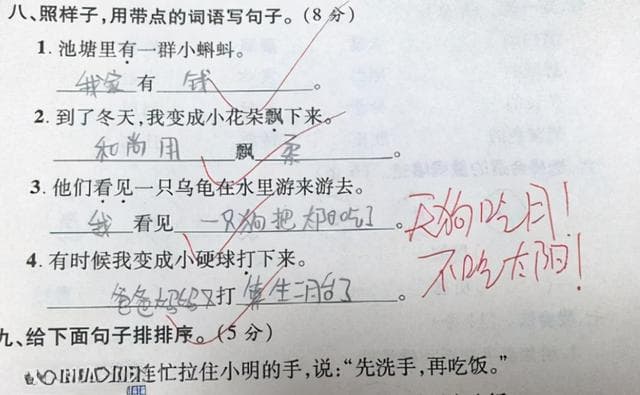 八、照样子,用带点的词语写句子。(8分)
1. 池塘里有一群小蝌蚪。
我家 有 钱 。
2. 到了冬天,我变成小花朵飘下来。
和尚用 飘 柔 。
3. 他们看见一只乌龟在水里游来游去。
我 看见 一只狗把太阳吃了 。
天狗吃月!
不吃太阳!
4. 有时候我变成小硬球打下来。
爸爸妈妈又打 算生二胎了 。
九、给下面句子排排序。(5分)
连忙拉住小明的手,说:“先洗手,再吃饭。”